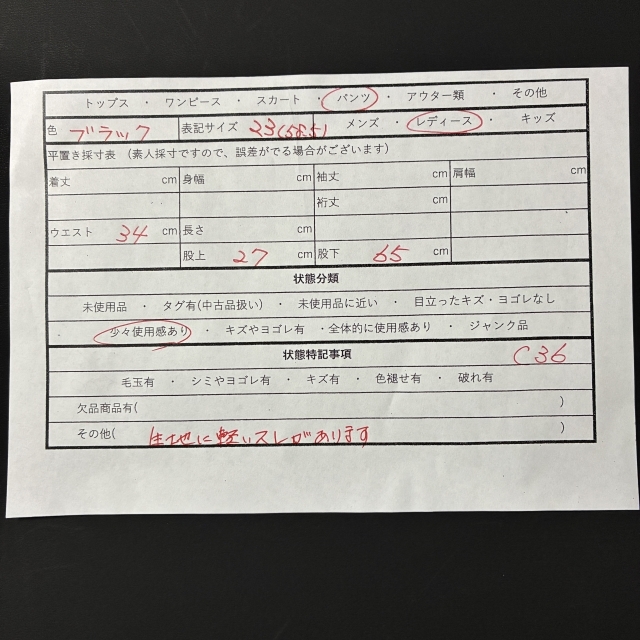 トップス ・ ワンピース ・ スカート ・ パンツ ・ アウター類 ・ その他
色 ブラック 表記サイズ 23(58.5) メンズ ・ レディース ・ キッズ
平置き採寸表 (素人採寸ですので、誤差がでる場合がございます)
着丈 cm 身幅 cm 袖丈 cm 肩幅 cm
裄丈 cm
ウエスト 34 cm 長さ cm
股上 27 cm 股下 65 cm
状態分類
未使用品 ・ タグ有(中古品扱い) ・ 未使用品に近い ・ 目立ったキズ・ヨゴレなし
少々使用感あり ・ キズやヨゴレ有 ・全体的に使用感あり ・ ジャンク品
状態特記事項 C36
毛玉有 ・ シミやヨゴレ有 ・ キズ有 ・ 色褪せ有 ・ 破れ有
欠品商品有( )
その他( 生地に軽いスレがあります )